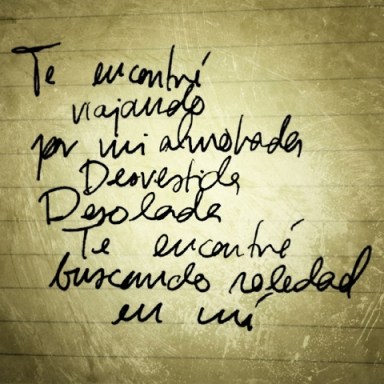 Te encontré
viajando
por mi almohada
Desvestida
Desolada
Te encontré
buscando soledad
en mí